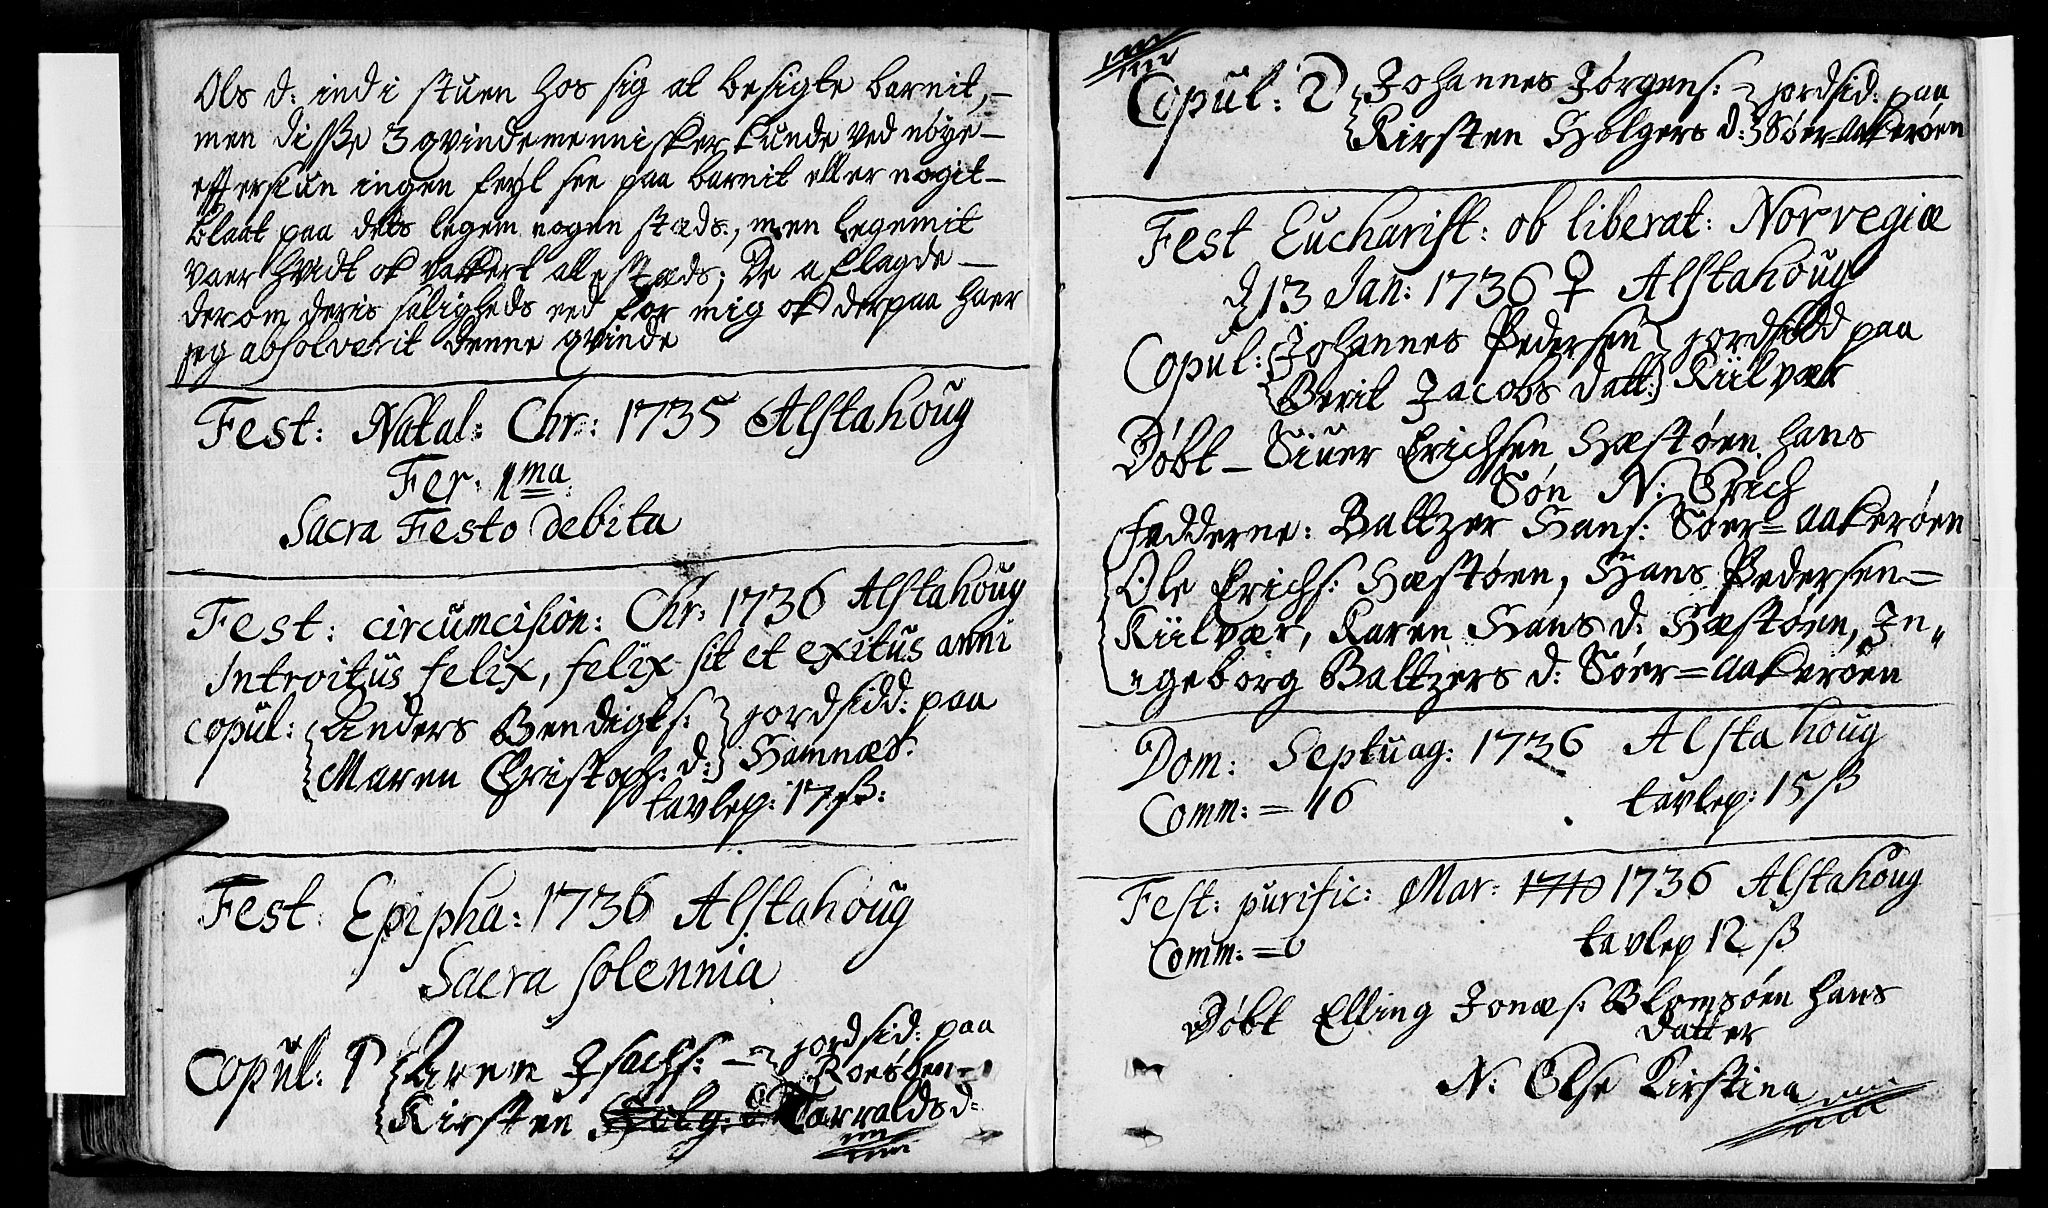 Ols d: ind i stuen hos sig at besigte barnit,
men disse 3 qvindemennisker kunde ved nøye-
effersiun ingen feyl see paa barnit eller nogit
blaat paa dets legem nogen stæds:, men legemit
vaer hvidt ok vakkert allestæds; De aflagde
derom deris saligheds eed for mig ok derpaa haer
jeg absolverit denne qvinde
Fest: Natal: Chr: 1735 Alstahoug
Fer: 1ma
Sacra Festo debita
Fest: circumcision: Chr: 1736 Alstahoug
Introitus felix, felix sit et exitus anni
copul: Anders Bendigts: jordsidd: paa
Maren Christoph: d: Hamnæs:
tavlep: 17 ß:
Fest: Epipha: 1736 Alstahoug
Sacra solennia
Copul: 1 Arent Isachs: jordsid: paa
Roesøen
Kirsten Holg: d: Tarralds d:
Copul: 2 Johannes Jørgens: jordsid: paa
Kirsten Holgers d: Søer=aakerøen
Fest Eucharist: ob liberat: Norvegiæ
d 13 Jan: 1736 ♀ Alstahoug
Copul: Johannes Pedersen jordsidd paa
Berit Jacobs datt: Kiilvær
Døbt – Siuer Erichsen Hæstøen hans
Søn N: Erich
Fadderne: Baltzer Hans: Søer=aakerøen
Ole Erichs: Hæstøen, Hans Pedersen
Kiilvær, Karen Hans d: Hæstøen, In„
„geborg Baltzers d: Søer=aakerøen
Dom: Septuag: 1736 Alstahoug
Comm: = 16 tavlep: 15 ß
Fest: purific: Mar: 1710 1736 Alstahoug
Comm: = 0 tavlep 12 ß
Døbt Elling Jonæs: Blomsøen hans
datter
N: Else Kirstina